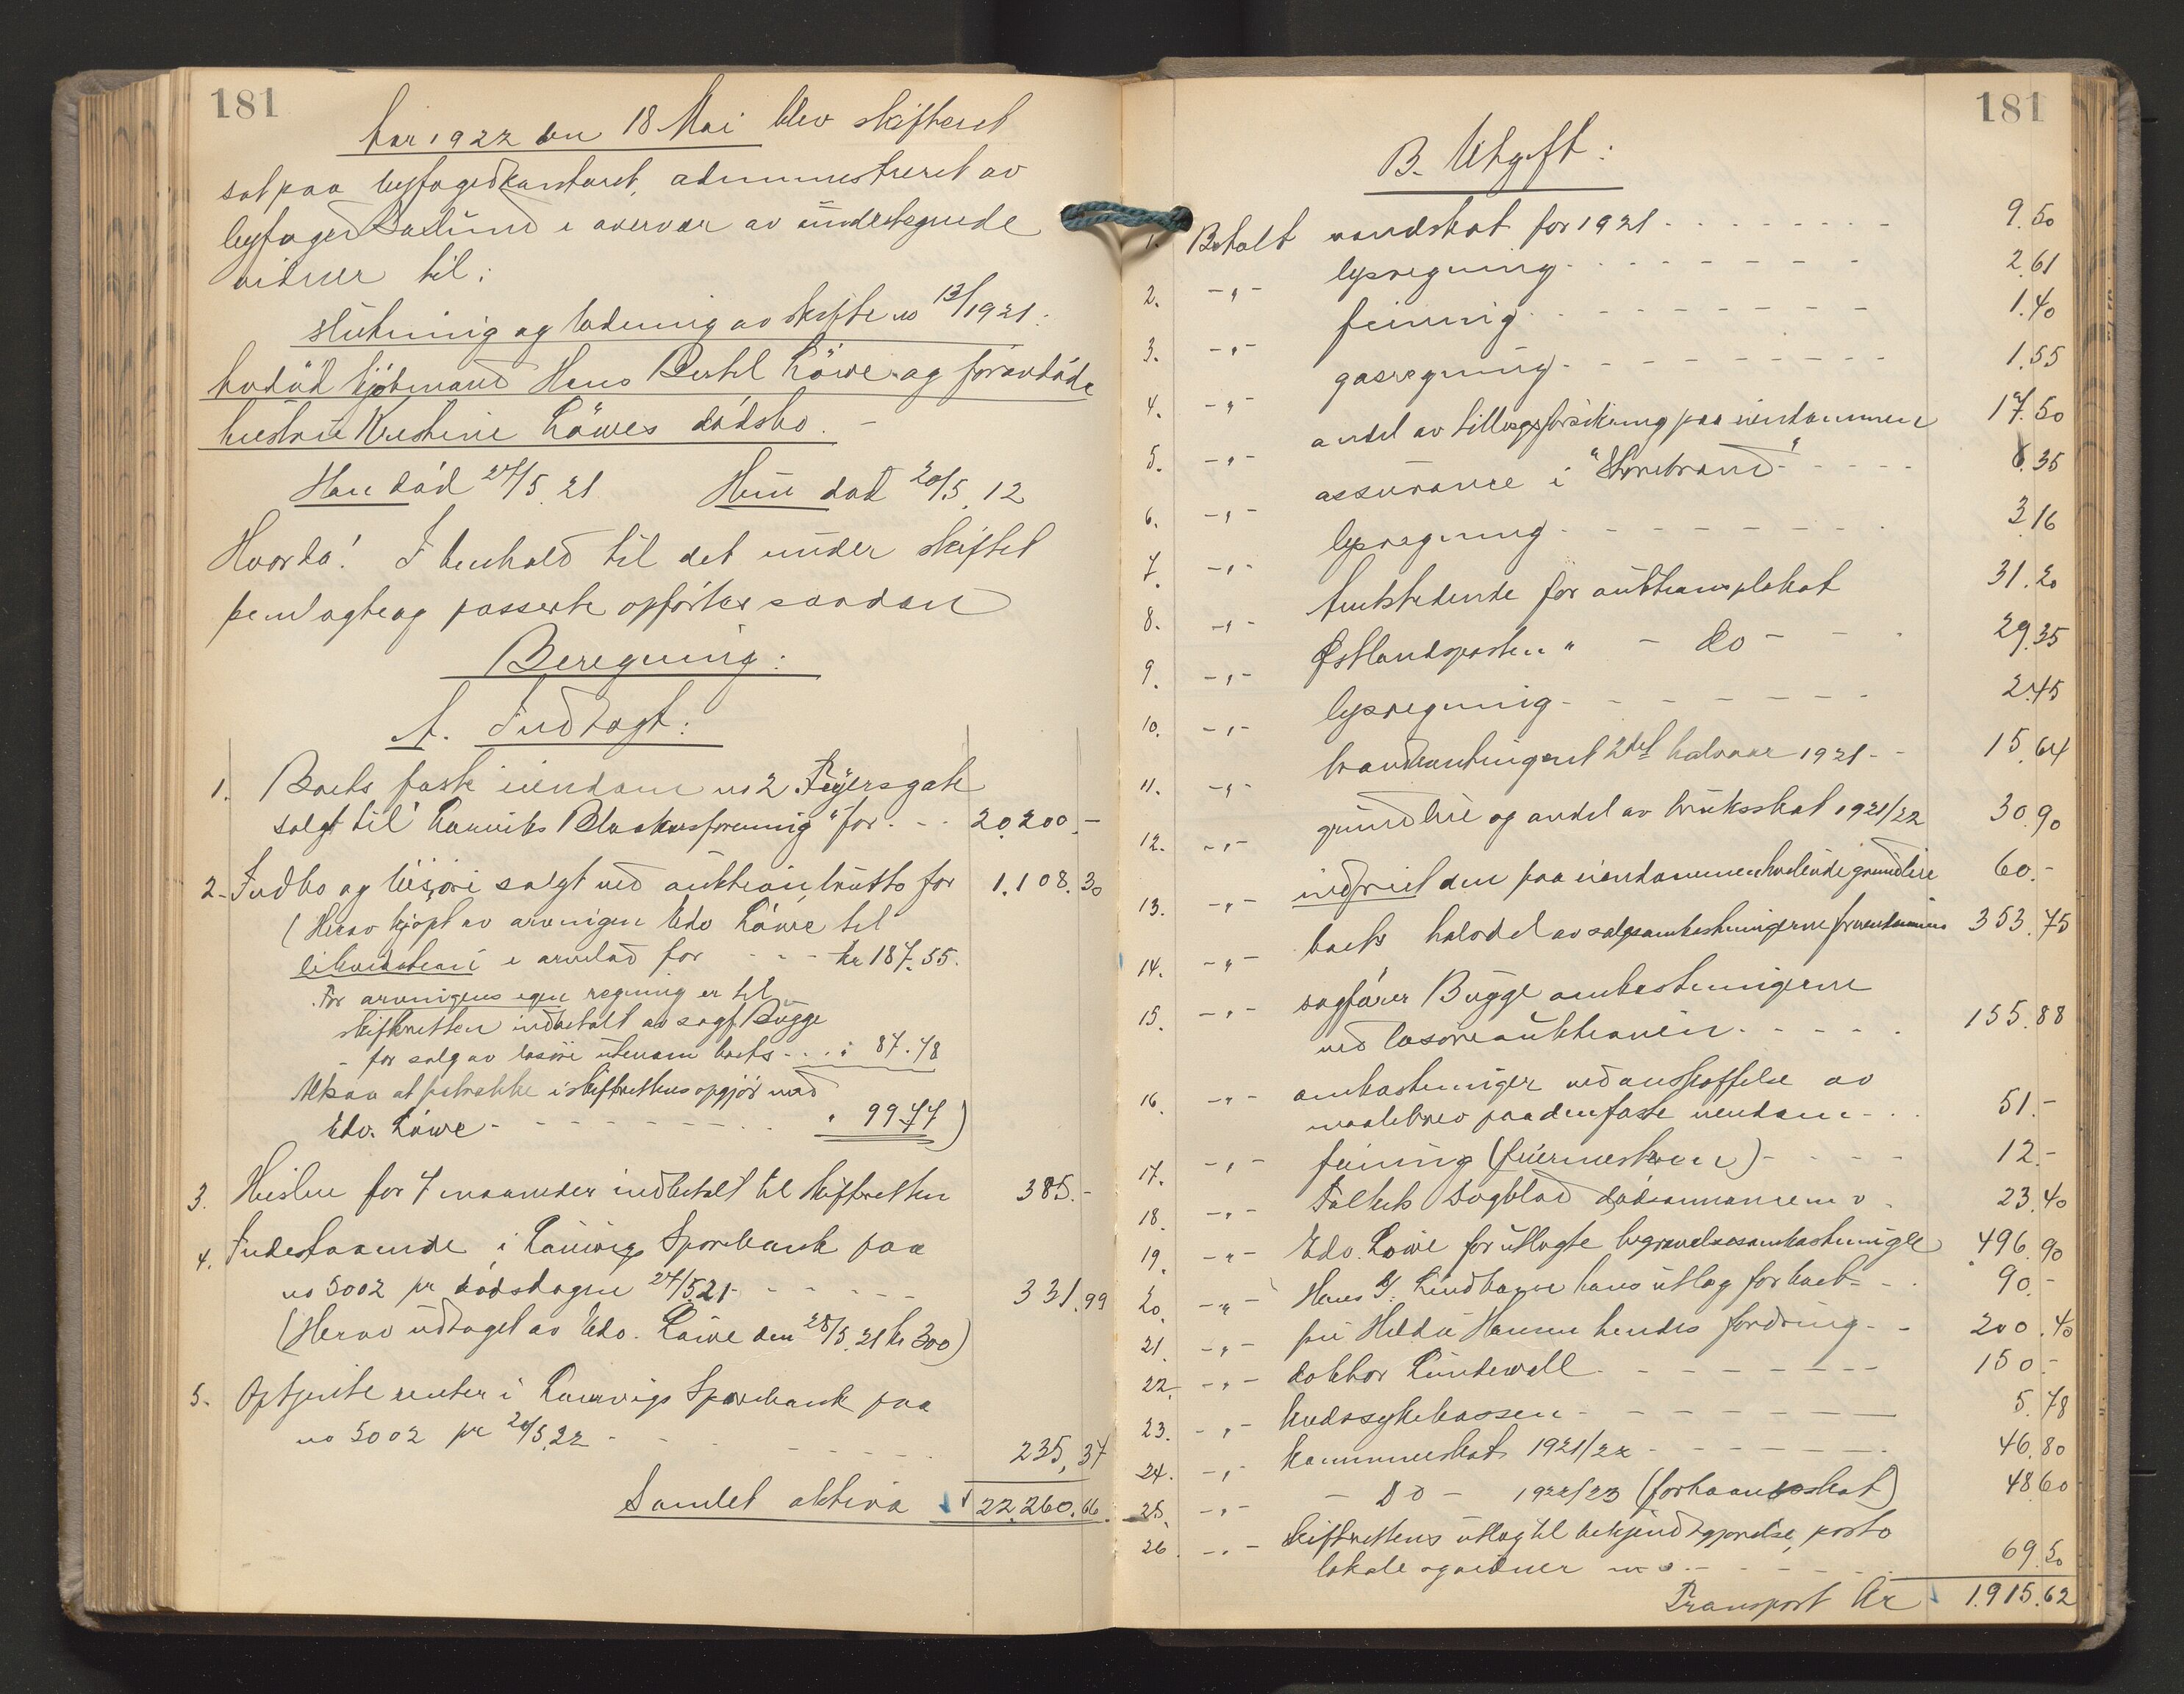 181
Aar 1922 den 18 Mai blev skifteret
sat paa byfogedkontoret, administreret av
byfoged Baslund i overvær av undertegnede
vidner til:
slutning og lodning av skifte no 13/1921:
avdød kjøbmand Hans Bertel Löwe og foravdøde
hustru Kristine Löwes dødsbo. -
Han død 27/5.21 Hun død 20/5.12
Hvorda! I henhold til det under skiftet
fremlagte og passerte opføres saadan
Beregning:
A. Indtægt:
1. Boets faste eiendom no 2 Feyersgate
solgt til Larviks Blaakorsforening "for - - 20.200.-
2. Indbo og løsøre solgt ved auktion, brutto for 1.108.30
(Herav kjøpt av arvingen Edv. Löwe til
likvidation i arvelod for - - - kr 187.55.
For arvingens egen regning er til
skifteretten indbetalt av sagf. Bugge
- for salg av løsøre utenom boets - - " 87.78
Altsaa at fratrække i skifterettens opgjør med
Edv. Löwe - - - - - - - " 99.77)
3. Husleie for 7 maaneder indbetalt til skifteretten 385.-
4. Indestaaende i Laurvigs Sparebank paa
no 5002 pr dødsdagen 27/5.21 - - - - - 331.99
(Herav uttaget av Edv. Löwe den 28/5.21 kr 300)
5. Optjente renter i Laurvigs Sparebank paa
no 5002 pr 20/5.22 - - - - - 235,37
Samlet aktiva 22.260.66.
181
B. Utgift:
1. Betalt vandskat for 1921 - - - - - - - 9.50
2. -"- lysregning - - - - - - - 2.61
3. -"- feining - - - - - - - 1.40
4. -"- gasregning - - - - - - - 1.55
5. -"- andel av tillægsforsikring paa eiendommen 17.50
6. -"- assurance i "Storebrand" - - - - 6.35
7. -"- lysregning - - - - - - - 3.16
8. -"- Amtstidende for auktionsplakat 31.20
9. -"- Østlandsposten " - do - - - 29.35
10. -"- lysregning - - - - - - 2.45
11. -"- brandkontingent 2det halvaar 1921 - - 15.64
12. -"- grundleie og andel av bruksskat 1921/22 30.90
13. -"- indfriet den paa eiendommen hvilende grundleie 60.-
14. -"- boets halvdel av salgsomkostningerne for eiendommen 353.75
15. -"- sagfører Bugge omkostningerne
ved løsøreauktionen - - - - - 155.88
16. -"- omkostninger ved anskaffelse av
maalebrev paa den faste eiendom - - 51.-
17. -"- feining (feiermesteren) - - - - 12.-
18. -"- Folkets Dagblad dødsannoncen - 23.40
19. -"- Edv. Löwe for utlagte begravelsesomkostninger 496.90
20. -"- Hans G. Lindtorpe hans utlag for boet - - 90.-
21. -"- frk Hilda Hansen hendes fordring - - 200.40
22. -"- doktor Lundewall - - - - - - - 150.-
23. -"- kredssykekassen - - - - - - 5.78
24. -"- kommuneskat 1921/22 - - - - - - 46.80
25. -"- - Do - 1922/23 (forhaandsskat) 48.60
26. -"- skifterettens utlæg til bekjendtgjørelse, porto
lokale og vidner m.v. - - - - - 69.50
Transport Kr 1.915.62